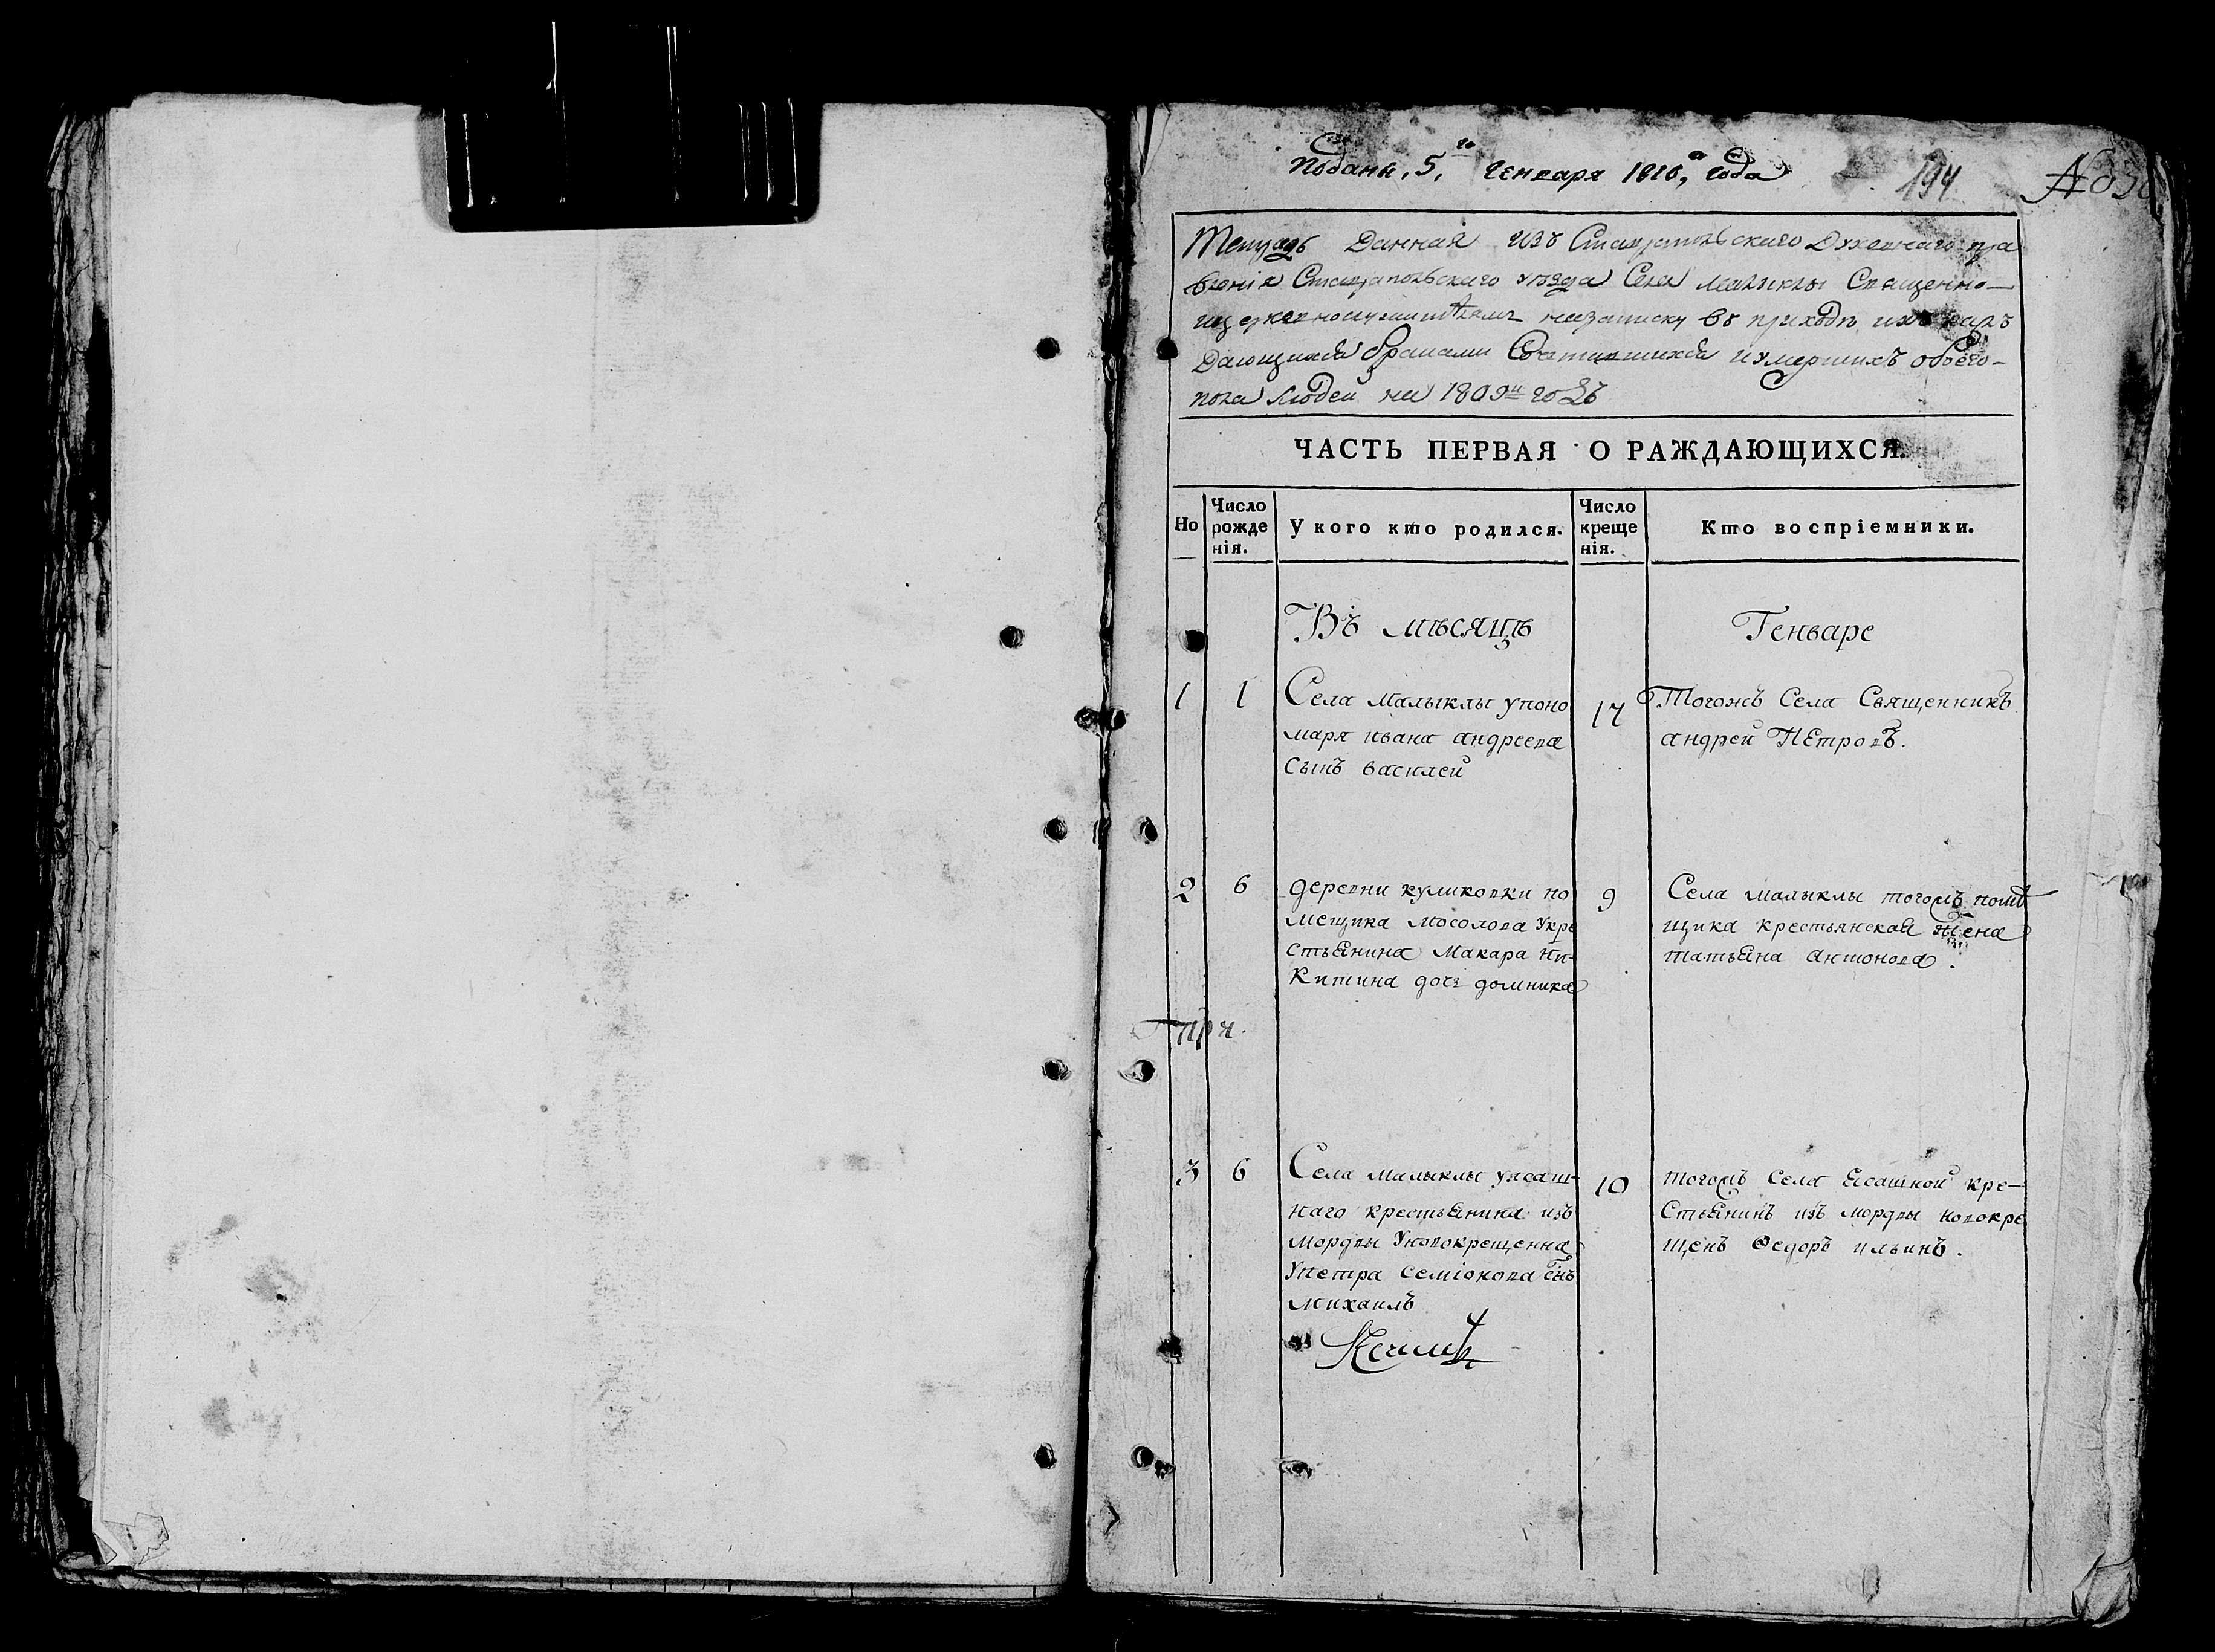 Поданы, 5, го Генваря 1810, года
194
Тетрадь Данная изъ Ставропольскаго Духовнаго пра
вленія Ставропольскаго уѣзда Села малыклы Священно-
ицерковнослужителямъ назаписку въ приходѣ ихъ раж
дающихся браками Сочетавшихся иумершихъ обоего-
пола людей на 1809й годъ
ЧАСТЬ ПЕРВАЯ О РАЖДАЮЩИХСЯ.
Но
Число рожде нія.
У кого кто родился.
Число креще нія.
Кто воспріемники.
Въ мѣсяцѣ
Генваре
1
1
Села малыклы упоно
маря ивана андреева
сынъ василей
17
Тогожъ Села Священникъ
андрей Петровъ.
2
6
деревни куликовки по
мещика мосолова укре
стьянина Макара ни-
китина дочь домника
9
Села малыклы тогожъ помѣ
щика крестьянская жена
татьяна антонова.
3
6
Села малыклы уясаш-
наго крестьянина изъ
мордвы уновокрещенна
упетра семіонова снъ
михаилъ
10
тогожъ села ясашной кре-
стьянинъ изъ мордвы новокре
щенъ Ѳедоръ ильинъ.